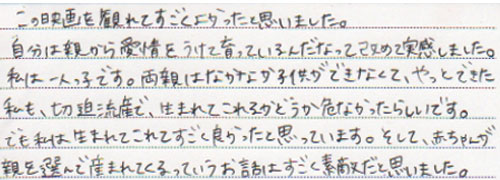 この映画を観れてすごくよかったと思いました。
自分は親から愛情をうけて育っているんだなって改めて実感しました。
私は一人っ子です。両親はなかなか子供ができなくて、やっとできた
私も、切迫流産で、生まれてこれるかどうか危なかったらしいです。
でも私は生まれてこれてすごく良かったと思っています。そして、赤ちゃんが
親を選んで産まれてくるっていうお話はすごく素敵だと思いました。